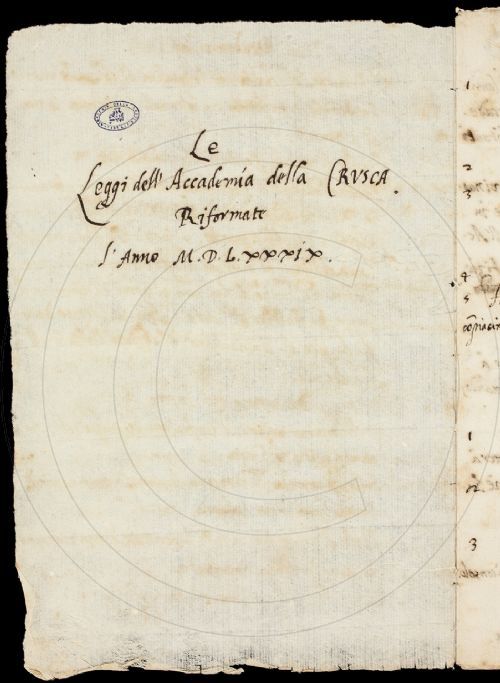 Le
Leggi dell' Accademia della CRVSCA.
Riformate
l'Anno M.D.LXXXIX.
1
2
3
4
5
1
2
3